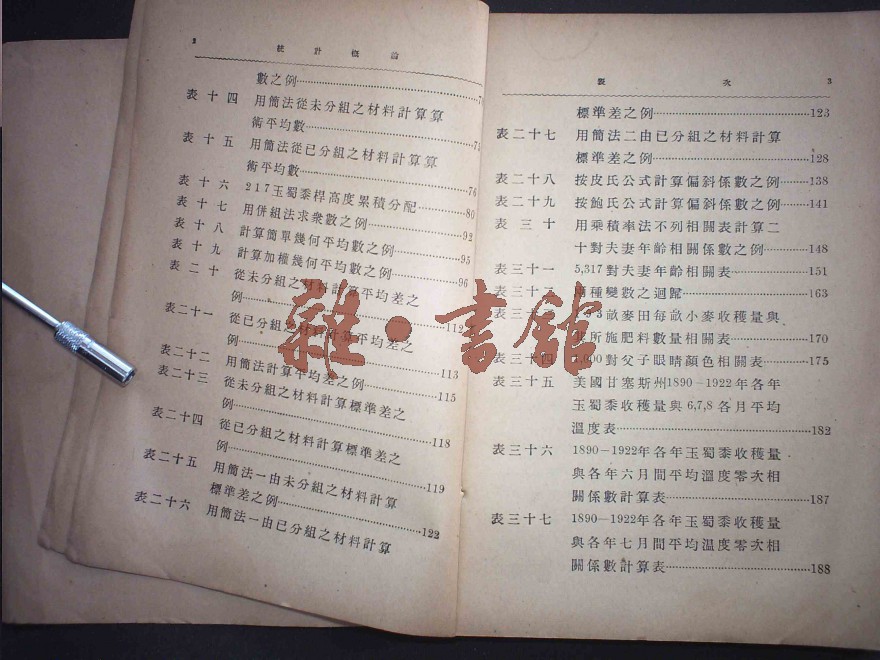 2 統計概論
數之例
表十四 用簡法從未分組之材料計算算
術平均數
表十五 用簡法從已分組之材料計算算
術平均數 76
表十六 217玉蜀黍桿高度累積分配 80
表十七 用併組法求衆數之例 92
表十八 計算簡單幾何平均數之例 95
表十九 計算加權幾何平均數之例 96
表二十 從未分組之材料計算平均差之
例 112
表二十一 從已分組之材料計算平均差之
例 113
表二十二 用簡法計算平均差之例 115
表二十三 從未分組之材料計算標準差之
例 118
表二十四 從已分組之材料計算標準差之
例 119
表二十五 用簡法一由未分組之材料計算
標準差之例 122
表二十六 用簡法一由已分組之材料計算
表次 3
標準差之例 123
表二十七 用簡法二由已分組之材料計算
標準差之例 128
表二十八 按皮氏公式計算偏斜係數之例 138
表二十九 按鮑氏公式計算偏斜係數之例 141
表三十 用乘積率法不列相關表計算二
十對夫妻年齡相關係數之例 148
表三十一 5,317對夫妻年齡相關表 151
表三十二 兩種變數之迴歸 163
表三十 畝麥田每畝小麥收穫量與
其所施肥料數量相關表 170
表三十四 1,000對父子眼睛顏色相關表 175
表三十五 美國甘塞斯州1890—1922年各年
玉蜀黍收穫量與6,7,8各月平均
溫度表 182
表三十六 1890—1922年各年玉蜀黍收穫量
與各年六月間平均溫度零次相
關係數計算表 187
表三十七 1890—1922年各年玉蜀黍收穫量
與各年七月間平均溫度零次相
關係數計算表 188
雜·書館